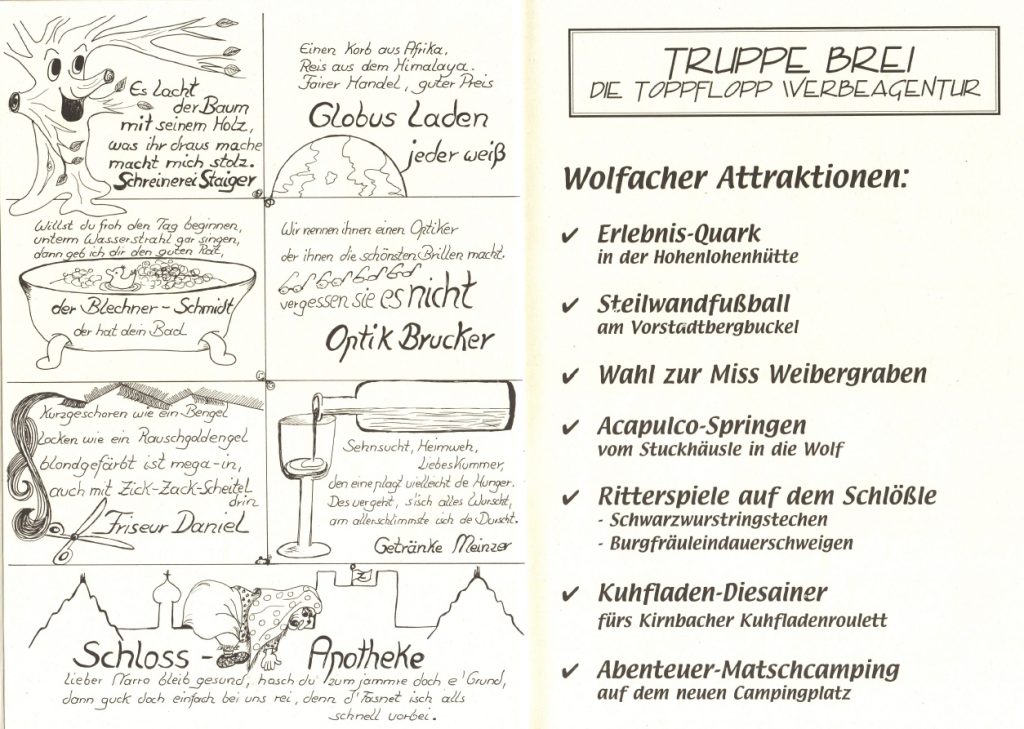 Es lacht
der Baum
mit seinem Holz,
was ihr draus mache
macht mich stolz.
Schreinerei Staiger
Einen Korb aus Afrika,
Reis aus dem Himalaya.
Fairer Handel, guter Preis
Globus Laden
jeder weiß
Willst du froh den Tag beginnen,
unterm Wasserstrahl gar singen,
dann geb ich dir den guten Rat,
der Blechner-Schmidt
der hat dein Bad
Wir nennen ihnen einen Optiker
der ihnen die schönsten Brillen macht.
vergessen sie es nicht
Optik Brucker
Kurzgeschoren wie ein Bengel
Locken wie ein Rauschgoldengel
blondgefärbt ist mega-in,
auch mit Zick-Zack-Scheitel
drin
Friseur Daniel
Sehnsucht, Heimweh,
Liebeskummer,
den eine plagt vielleicht de Hunger.
Des vergeht, s'isch alles Wurscht,
am allerschlimmste isch de Durscht.
Getränke Meinzer
Schloss - Apotheke
Lieber Narro bleib gesund, hasch du zum jammre doch e' Grund,
dann guck doch einfach bei uns rei, denn d'Fasnet isch alls
schnell vorbei.
TRUPPE BREI
DIE TOPPFLOPP WERBEAGENTUR
Wolfacher Attraktionen:
✔ Erlebnis-Quark
in der Hohenlohenhütte
✔ Steilwandfußball
am Vorstadtbergbuckel
✔ Wahl zur Miss Weibergraben
✔ Acapulco-Springen
vom Stuckhäusle in die Wolf
✔ Ritterspiele auf dem Schlößle
- Schwarzwurstringstechen
- Burgfräuleindauerschweigen
✔ Kuhfladen-Diesainer
fürs Kirnbacher Kuhfladenroulett
✔ Abenteuer-Matschcamping
auf dem neuen Campingplatz